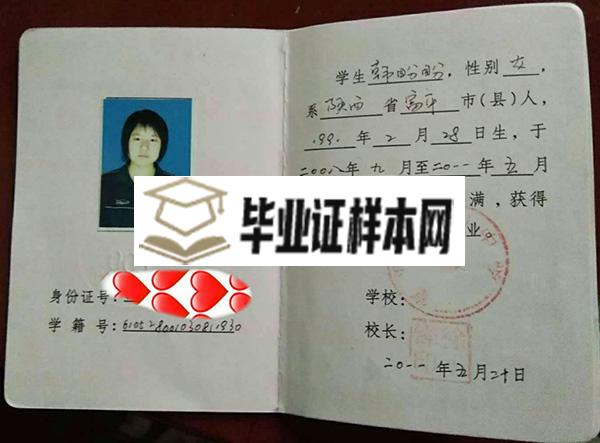 学生韩盼盼，性别女，
系陕西省富平市（县）人，
199 年2月28日生，于
二00八年九月至二0一一年五月
满，获得
业。
毕业证样本网
学校：
校长：
二0一一年五月二十日
身份证号：
学籍号：